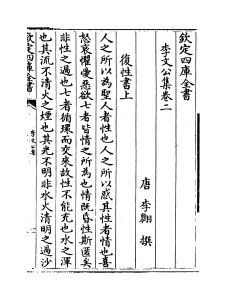 欽定四庫全書
李文公集卷二
唐 李翺 撰
復性書上
人之所以為聖人者性也人之所以惑其性者情也喜
怒哀懼愛惡欲七者皆情之所為也情既昏性斯匿矣
非性之過也七者循環而交來故性不能充也水之渾
也其流不清火之煙也其光不明非水火清明之過沙
欽定四庫全書
李文公集